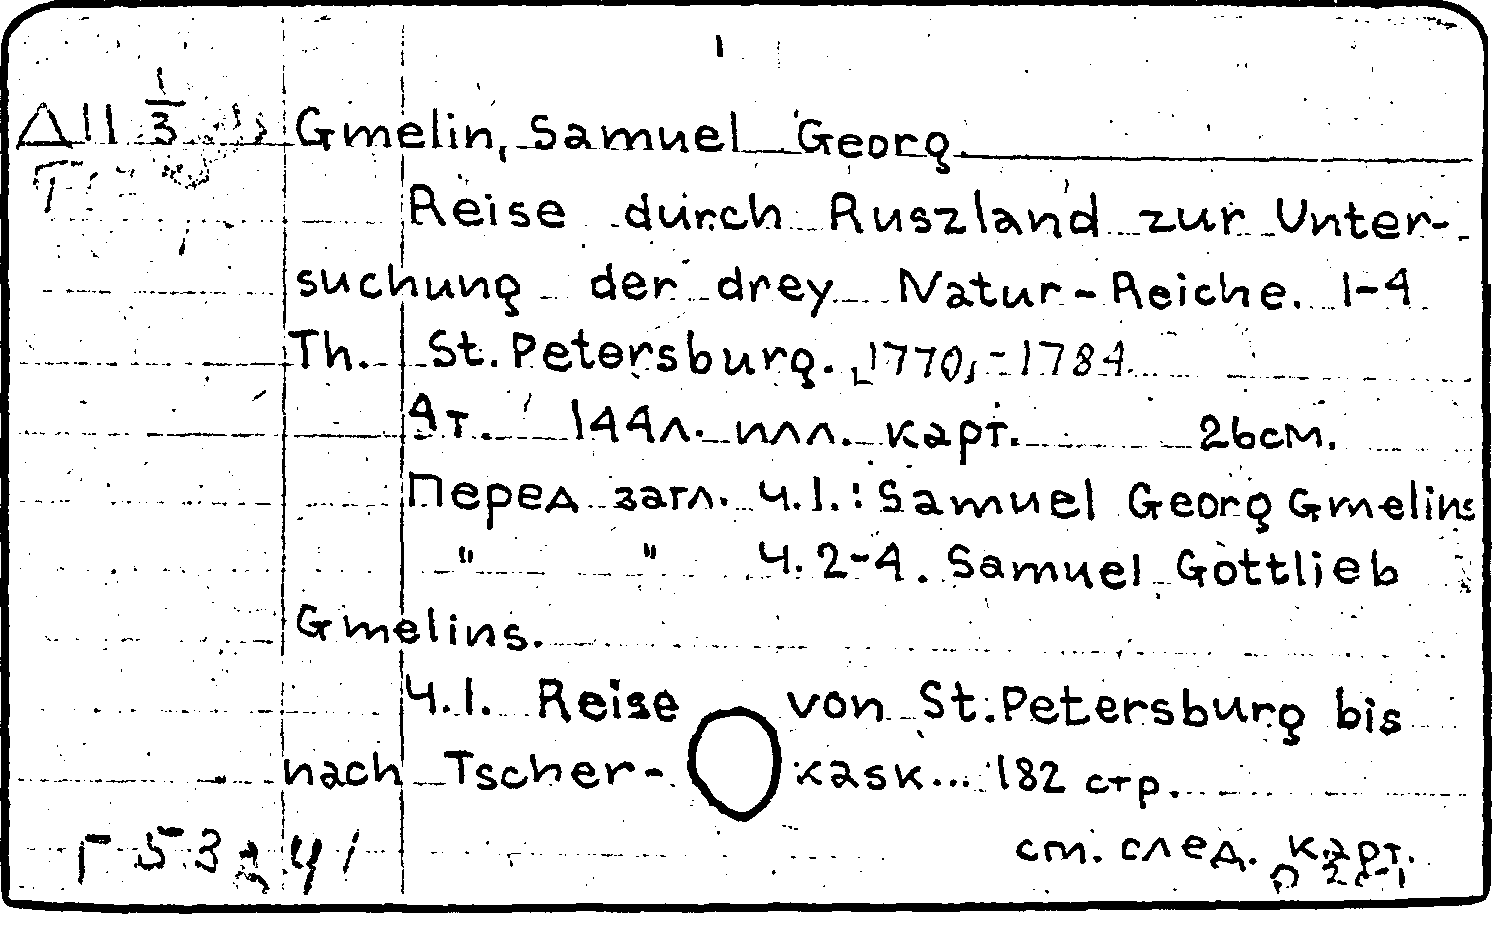 1
Д11 1/3 Gmelin, Samuel Georg.
Reise durch Ruszland zur Unter-
suchung der drey Natur-Reiche. 1-4
Th. St. Petersburg. 1770,-1784.
4т. 144л. илл. карт. 26см.
Перед загл. Ч.1.: Samuel Georg Gmelins
" " Ч.2-4. Samuel Gottlieb
Gmelins.
Ч.1. Reise von St. Petersburg bis
nach Tscher- kask... 182 стр.
см. след. карт.